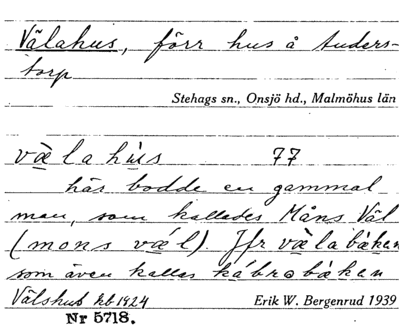 Välahus, förr hus å Anders-
torp
Stehags sn., Onsjö hd., Malmöhus län
vàlahùs 77
här bodde en gammal
man, som kallades Måns Väl
(mons väl). Jfr vàlabàken
som även kallas kábrobàken
Välshus kb 1924 Erik W. Bergenrud 1939
Nr 5718.